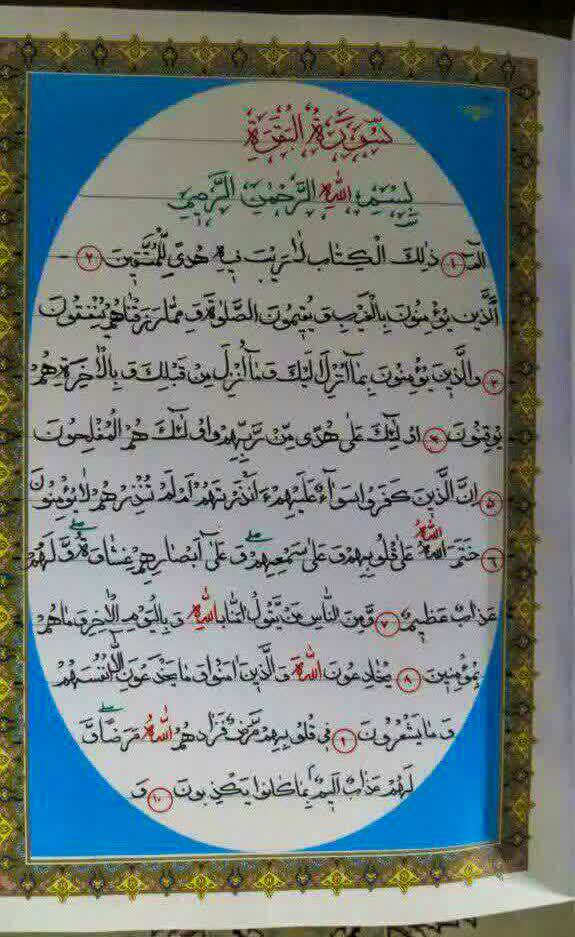 سُورَةُ الْبَقَرَةِ
بِسْمِ اللّٰهِ الرَّحْمٰنِ الرَّحِیمِ
الم ۱ ذٰلِكَ الْكِتَابُ لَا رَيْبَ فِيهِ هُدًى لِلْمُتَّقِينَ ۲
الَّذِينَ يُؤْمِنُونَ بِالْغَيْبِ وَ يُقِيمُونَ الصَّلٰوةَ وَ مِمَّا رَزَقْنَاهُمْ يُنْفِقُونَ
۳ وَالَّذِينَ يُؤْمِنُونَ بِمَا أُنْزِلَ إِلَيْكَ وَ مَا أُنْزِلَ مِنْ قَبْلِكَ وَ بِالْآخِرَةِ هُمْ
يُوقِنُونَ ۴ اُولٰئِكَ عَلٰى هُدًى مِنْ رَبِّهِمْ وَ اُولٰئِكَ هُمُ الْمُفْلِحُونَ
۵ اِنَّ الَّذِينَ كَفَرُوا سَوَآءٌ عَلَيْهِمْ ءَاَنْذَرْتَهُمْ اَمْ لَمْ تُنْذِرْهُمْ لَا يُؤْمِنُونَ
۶ خَتَمَ اللّٰهُ عَلٰى قُلُوبِهِمْ وَ عَلٰى سَمْعِهِمْ وَ عَلٰى اَبْصَارِهِمْ غِشَاوَةٌ وَ لَهُمْ
عَذَابٌ عَظِيمٌ ۷ وَ مِنَ النَّاسِ مَنْ يَقُولُ اٰمَنَّا بِاللّٰهِ وَ بِالْيَوْمِ الْاٰخِرِ وَ مَا هُمْ
بِمُؤْمِنِينَ ۸ يُخَادِعُونَ اللّٰهَ وَ الَّذِينَ اٰمَنُوا وَ مَا يَخْدَعُونَ اِلَّا اَنْفُسَهُمْ
وَ مَا يَشْعُرُونَ ۹ فِى قُلُوبِهِمْ مَرَضٌ فَزَادَهُمُ اللّٰهُ مَرَضًا وَ
لَهُمْ عَذَابٌ اَلِيمٌ بِمَا كَانُوا يَكْذِبُونَ ۱۰ وَ